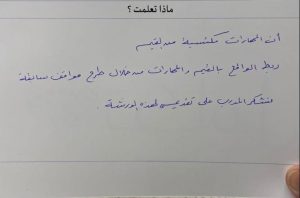 ماذا تعلمت ؟
أن المهارات مكتسبة من القيم
ربط الواقع بالقيم والمهارات من خلال طرح مواقف سابقة
نشكر المدرب على تقديمه لهذه الورشة